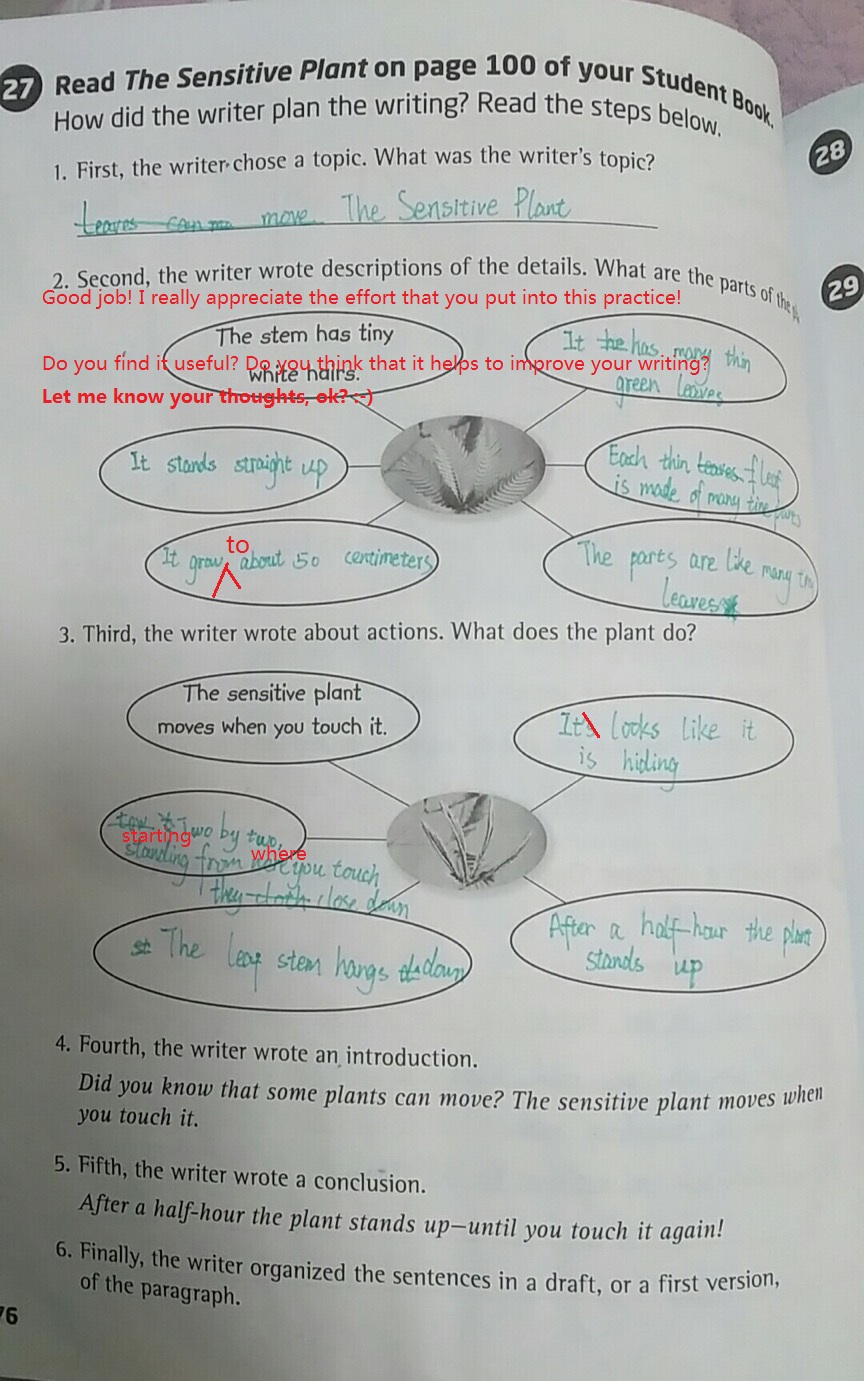 27 Read The Sensitive Plant on page 100 of your Student Book.
How did the writer plan the writing? Read the steps below.
28
1. First, the writer chose a topic. What was the writer's topic?
Leaves can move The Sensitive Plant
2. Second, the writer wrote descriptions of the details. What are the parts of the
29
Good job! I really appreciate the effort that you put into this practice!
The stem has tiny
white hairs.
It has many thin
green leaves
Do you find it useful? Do you think that it helps to improve your writing?
Let me know your thoughts, ok? :-)
It stands straight up
Each thin leaves leaf
is made of many tine parts
to
It grow about 50 centimeters
The parts are like many
leaves
3. Third, the writer wrote about actions. What does the plant do?
The sensitive plant
moves when you touch it.
It's looks like it
is hiding
Two by two,
starting
standing from here you touch
where
they close down
The leaf stem hangs down
After a half-hour the plant
stands up
4. Fourth, the writer wrote an introduction.
Did you know that some plants can move? The sensitive plant moves when
you touch it.
5. Fifth, the writer wrote a conclusion.
After a half-hour the plant stands up—until you touch it again!
6. Finally, the writer organized the sentences in a draft, or a first version,
of the paragraph.
76